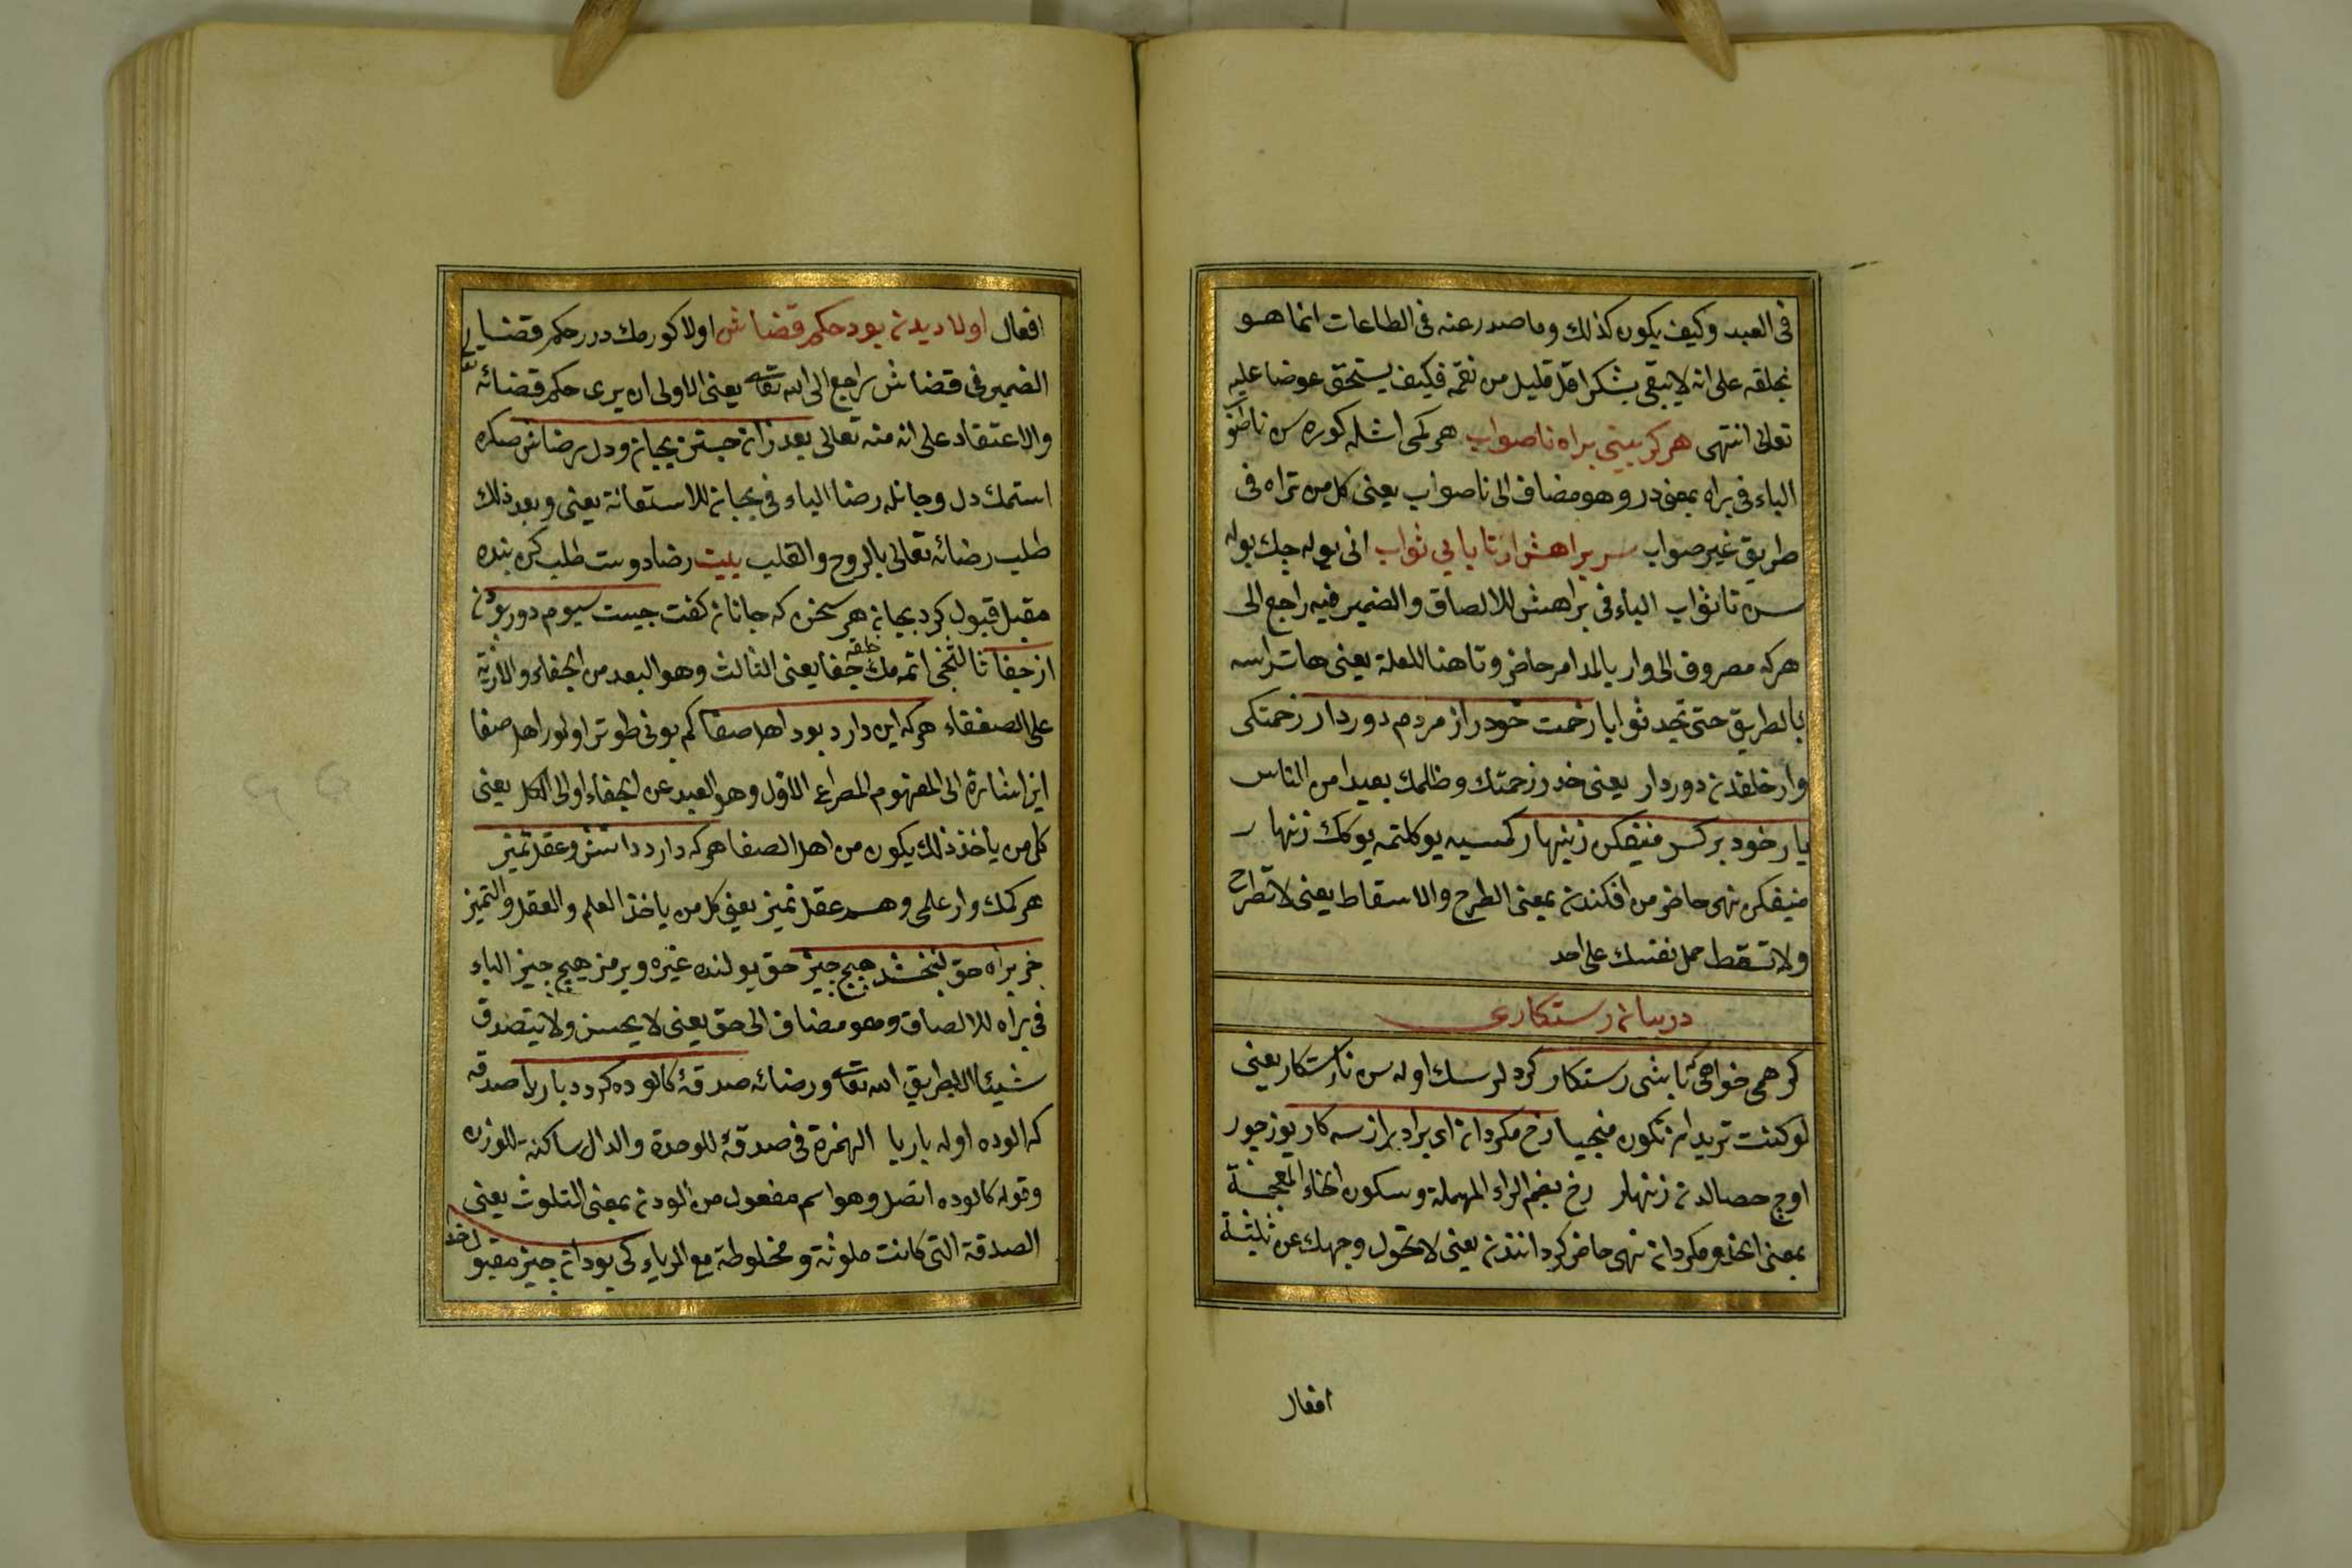 فى العبد وكيف يكون كذلك وما صدر عنه فى الطاعات انما هو
بخلقه على انه لا يبقى بشكر اقل قليل من نعمه فكيف يستحق عوضا عليه
تعالى انتهى هر كرا بينى براه ناصواب هر كمى اشله كوره سن ناطغو
الباء فى براه بمعنى در وهو مضاف الى ناصواب يعنى كل من تراه فى
طريق غير صواب سر براهش ار تا يابى ثواب انى يوله چك بوله
سن تا ثواب الباء فى براهش للالصاق والضمير فيه راجع الى
هركه مصروف الى وار يا لمد امر حاضر وتا هنا للعلة يعنى هات راسه
بالطريق حتى تجد ثوابا زحمت خود را از مردم دور دار زحمتكى
وار خلقدن دور دار يعنى خذ زحمتك وظلمك بعيدا من الناس
بار خود بر كس ميفكن زينهار كمسيه يوكلتمه يوكك زنهار
ميفكن نهى حاضر من افكندن بمعنى الطرح والاسقاط يعنى لا تطرح
ولا تسقط حمل نفسك على احد
در بيان رستكارى
كر همى خواهى كه باشى رستكار كرد لرسك اوله سن تا رستكار يعنى
لو كنت تريد ان تكون منجيا رخ مكردان اى برادر از سه كار يوز چور
اوچ حصالدن زنهار رخ بضم الراء المهملة وسكون الخاء المعجمة
بمعنى الخد ومكردان نهى حاضر كردانندن يعنى لا تحول وجهك عن ثلثة
افعال
افعال اولا ديدن بود حكم قضاش اولا كورمك درر حكم قضايى
الضمير فى قضاش راجع الى الله تعالى يعنى الاولى ان يرى حكم قضائه
والاعتقاد على انه منه تعالى بعد زان جستن بجان ودل رضاش صكره
استمك دل وجانله رضا الباء فى بجان للاستعانة يعنى وبعد ذلك
طلب رضائه تعالى بالروح والقلب بيت رضا دوست طلب كن بنده
مقبل قبول كرد بجان هر سخن كه جانان كفت چيست سيوم دور بودن
از جفا ثالثنجى اتمه مك خلقه جفا يعنى الثالث وهو البعد من الجفاء والاذية
على الضعفاء هركه اين دارد بود اهل صفا كم بونى طوتر اولور اهل صفا
اين اشارة الى المفهوم المصراع الاول وهو البعد عن الجفاء او الى الكل يعنى
كل من ياخذ ذلك يكون من اهل الصفا هركه دارد دانش وعقل تميز
هر كمك وار علمى وهم عقل تميز يعنى كل من ياخذ العلم والعقل والتميز
خر براه حق نبخشد هيچ چيز حق يولنده غيره ويرمز هيچ چيز الباء
فى براه للالصاق وهو مضاف الى حق يعنى لا يحسن ولا يتصدق
شيئا الا بطريق الله تعالى ورضائه صدقۀ كالوده كردد با ريا صدقه
كه الوده اوله باريا الهمزة فى صدقۀ للوحدة والدال ساكنة للوزن
وقوله كالوده اتصل وهو اسم مفعول من الودن بمعنى التلوث يعنى
الصدقة التى كانت ملوثة ومخلوطة مع الرياء كى بود ان چيز مقبول خدا